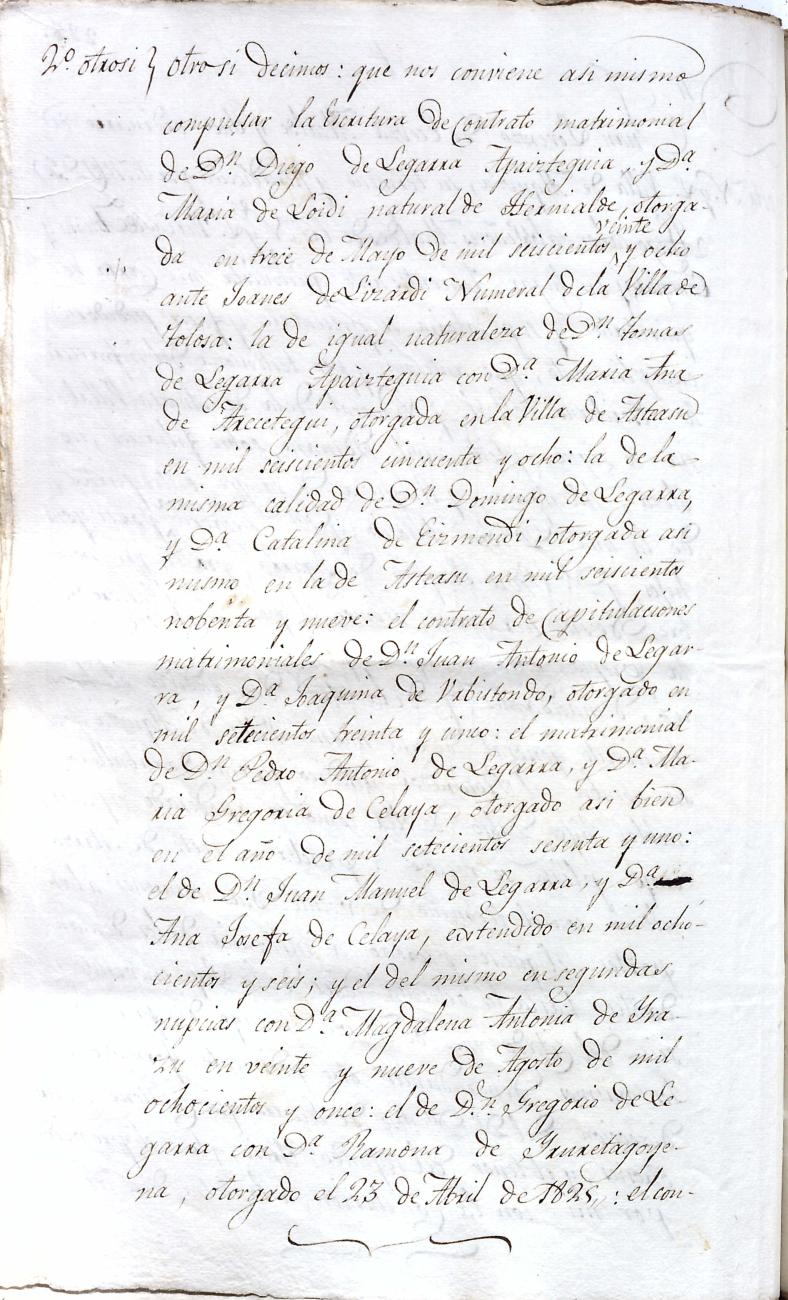 2º. otrosi } otrosi decimos: que nos conviene asi mismo
compulsar la Escritura de Contrato matrimonial
de Dn. Diego de Legarra Apaizteguia, y Da.
Maria de Loidi natural de Hernialde, otorga-
da en trece de Mayo de mil seiscientos veinte y ocho
ante Joanes de Lizardi Numeral de la Villa de
Tolosa: la de igual naturaleza de Dn. Tomas
de Legarra Apaizteguia con Da. Maria Ana
de Arecetegui, otorgada en la Villa de Asteasu
en mil seiscientos cincuenta y ocho: la de la
misma calidad de Dn. Domingo de Legarra,
y Da. Catalina de Eizmendi, otorgada asi
mismo en la de Asteasu en mil seiscientos
nobenta y nueve: el contrato de Capitulaciones
matrimoniales de Dn. Juan Antonio de Legar-
ra, y Da. Joaquina de Urbistondo, otorgado en
mil setecientos treinta y uno: el matrimonial
de Dn. Pedro Antonio de Legarra, y Da. Ma-
ria Gregoria de Celaya, otorgado asi bien
en el año de mil setecientos sesenta y uno:
el de Dn. Juan Manuel de Legarra, y Da.
Ana Josefa de Celaya, extendido en mil ocho-
cientos y seis; y el del mismo en segundas
nupcias con Da. Magdalena Antonia de Yra-
zu en veinte y nueve de Agosto de mil
ochocientos y once: el de Dn. Gregorio de Le-
garra con Da. Ramona de Yruretagoye-
na, otorgado el 23 de Abril de : el con-